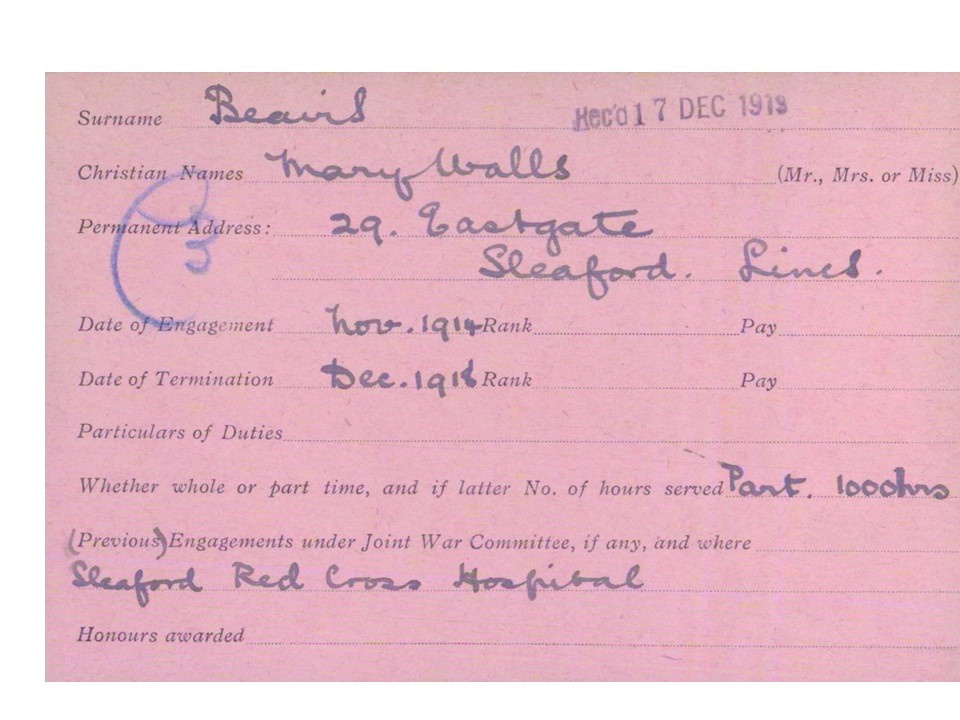 Surname Beavis Rec'd 17 DEC 1919
Christian Names Mary Walls (Mr., Mrs. or Miss)
Permanent Address: 29. Eastgate
Sleaford. Lincs.
Date of Engagement Nov. 1914 Rank Pay
Date of Termination Dec. 1918 Rank Pay
Particulars of Duties
Whether whole or part time, and if latter No. of hours served Part. 1000hrs
(Previous) Engagements under Joint War Committee, if any, and where
Sleaford Red Cross Hospital
Honours awarded